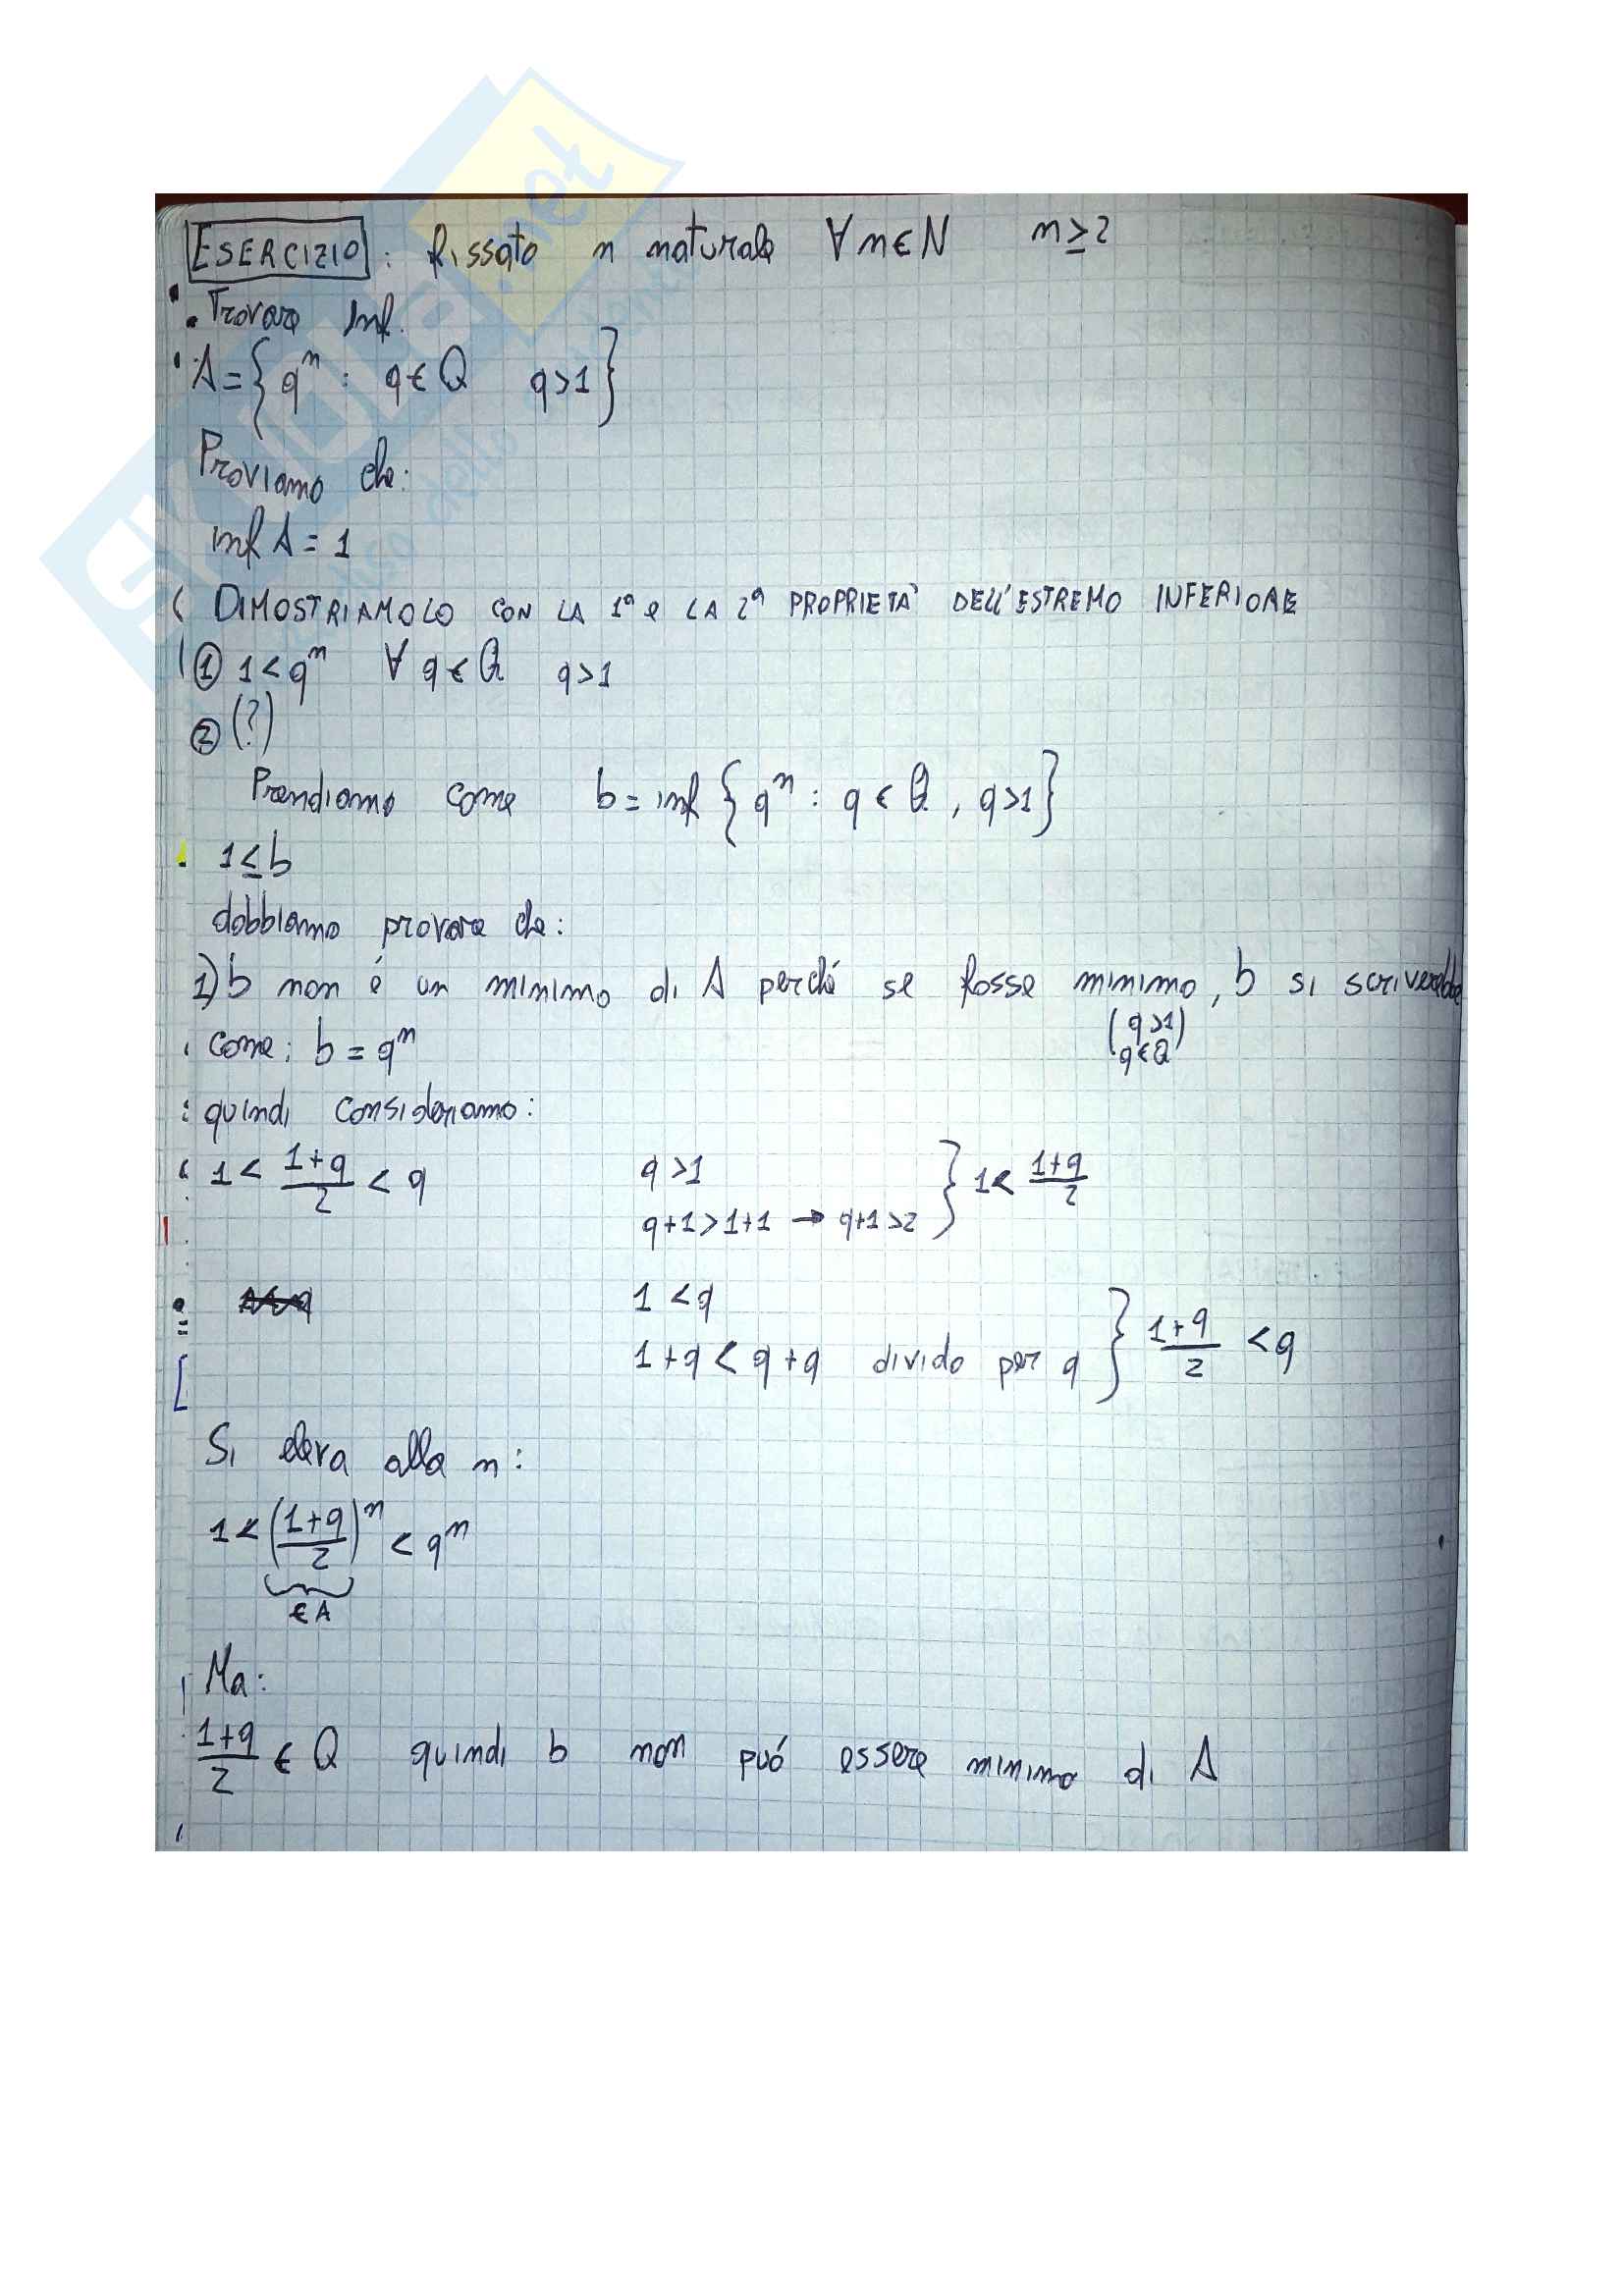 ESERCIZIO: fissato n naturale ∀ n ∈ N n ≥ 2
. Trovare Inf.
A = { qⁿ : q ∈ Q q > 1 }
Proviamo che:
inf A = 1
DIMOSTRIAMOLO CON LA 1ª e LA 2ª PROPRIETA' DELL'ESTREMO INFERIORE
① 1 < qⁿ ∀ q ∈ Q q > 1
② (?)
Prendiamo come b = inf { qⁿ : q ∈ Q , q > 1 }
1 ≤ b
dobbiamo provare che:
1) b non é un minimo di A perché se fosse minimo, b si scriverebbe
come: b = qⁿ (q > 1 q ∈ Q)
quindi consideriamo:
1 < (1+q)/2 < q q > 1 } 1 < (1+q)/2
q+1 > 1+1 → q+1 > 2
1 < q
1+q < q+q divido per q } (1+q)/2 < q
Si eleva alla n:
1 < ((1+q)/2)ⁿ < qⁿ
∈ A
Ma:
(1+q)/2 ∈ Q quindi b non puó essere minimo di A